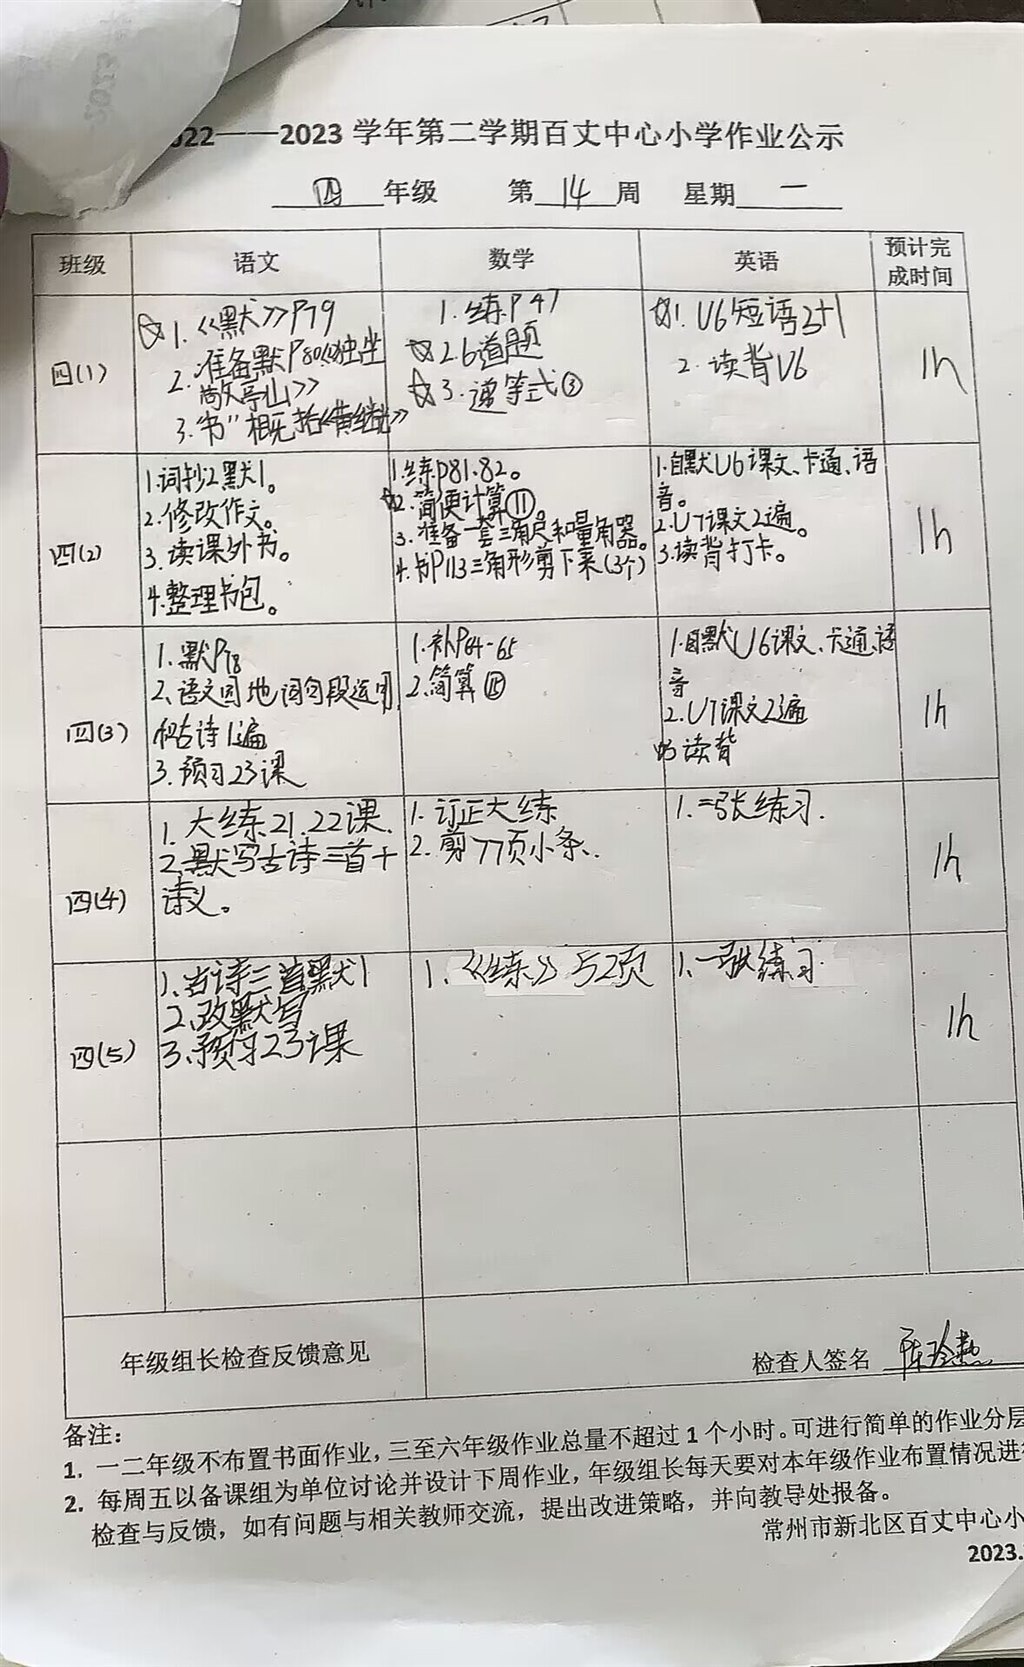 22——2023 学年第二学期百丈中心小学作业公示
四 年级 第 14 周 星期 一
班级 语文 数学 英语 预计完成时间
四(1)
☆1.《默》P79
2.准备默P80《独坐
敬亭山》
3.“书”概括《黄继光》
1.练P47
☆2.6道题
☆3.递等式③
☆1.U6短语2+1
2.读背U6
1h
四(2)
1.词抄2默1。
2.修改作文。
3.读课外书。
4.整理书包。
1.练P81.82。
☆2.简便计算⑪。
3.准备一套三角尺和量角器。
4.书P113三角形剪下来(3个)
1.自默U6课文、卡通、语
音。
2.U7课文2遍。
3.读背打卡。
1h
四(3)
1.默P78
2.语文园地词句段运用
和古诗1遍
3.预习23课
1.补P64-65
2.简算
1.自默U6课文、卡通、语
音
2.U7课文2遍
读背
1h
四(4)
1.大练21.22课.
2.默写古诗三首+
诗义。
1.订正大练
2.剪77页小条.
1.一张练习.
1h
四(5)
1.古诗三首默1
2.改默写
3.预习23课
1.《练》2页
1.一张练习
1h
年级组长检查反馈意见
检查人签名
备注：
1. 一二年级不布置书面作业，三至六年级作业总量不超过 1 个小时。可进行简单的作业分层
2. 每周五以备课组为单位讨论并设计下周作业，年级组长每天要对本年级作业布置情况进行
检查与反馈，如有问题与相关教师交流，提出改进策略，并向教导处报备。
常州市新北区百丈中心小
2023.